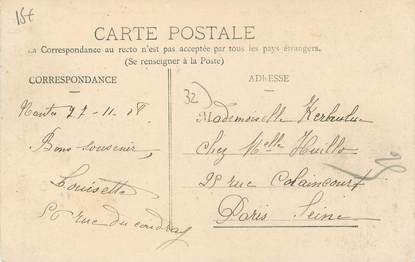 15€
CARTE POSTALE
La Correspondance au recto n'est pas acceptée par tous les pays étrangers.
(Se renseigner à la Poste)
CORRESPONDANCE
Nantes 22-11-08
Bons souvenirs
Louisette
56 rue du coudray
ADRESSE
32
Mademoiselle
Chez Melle Huillo
25 rue Colaincourt
Paris Seine